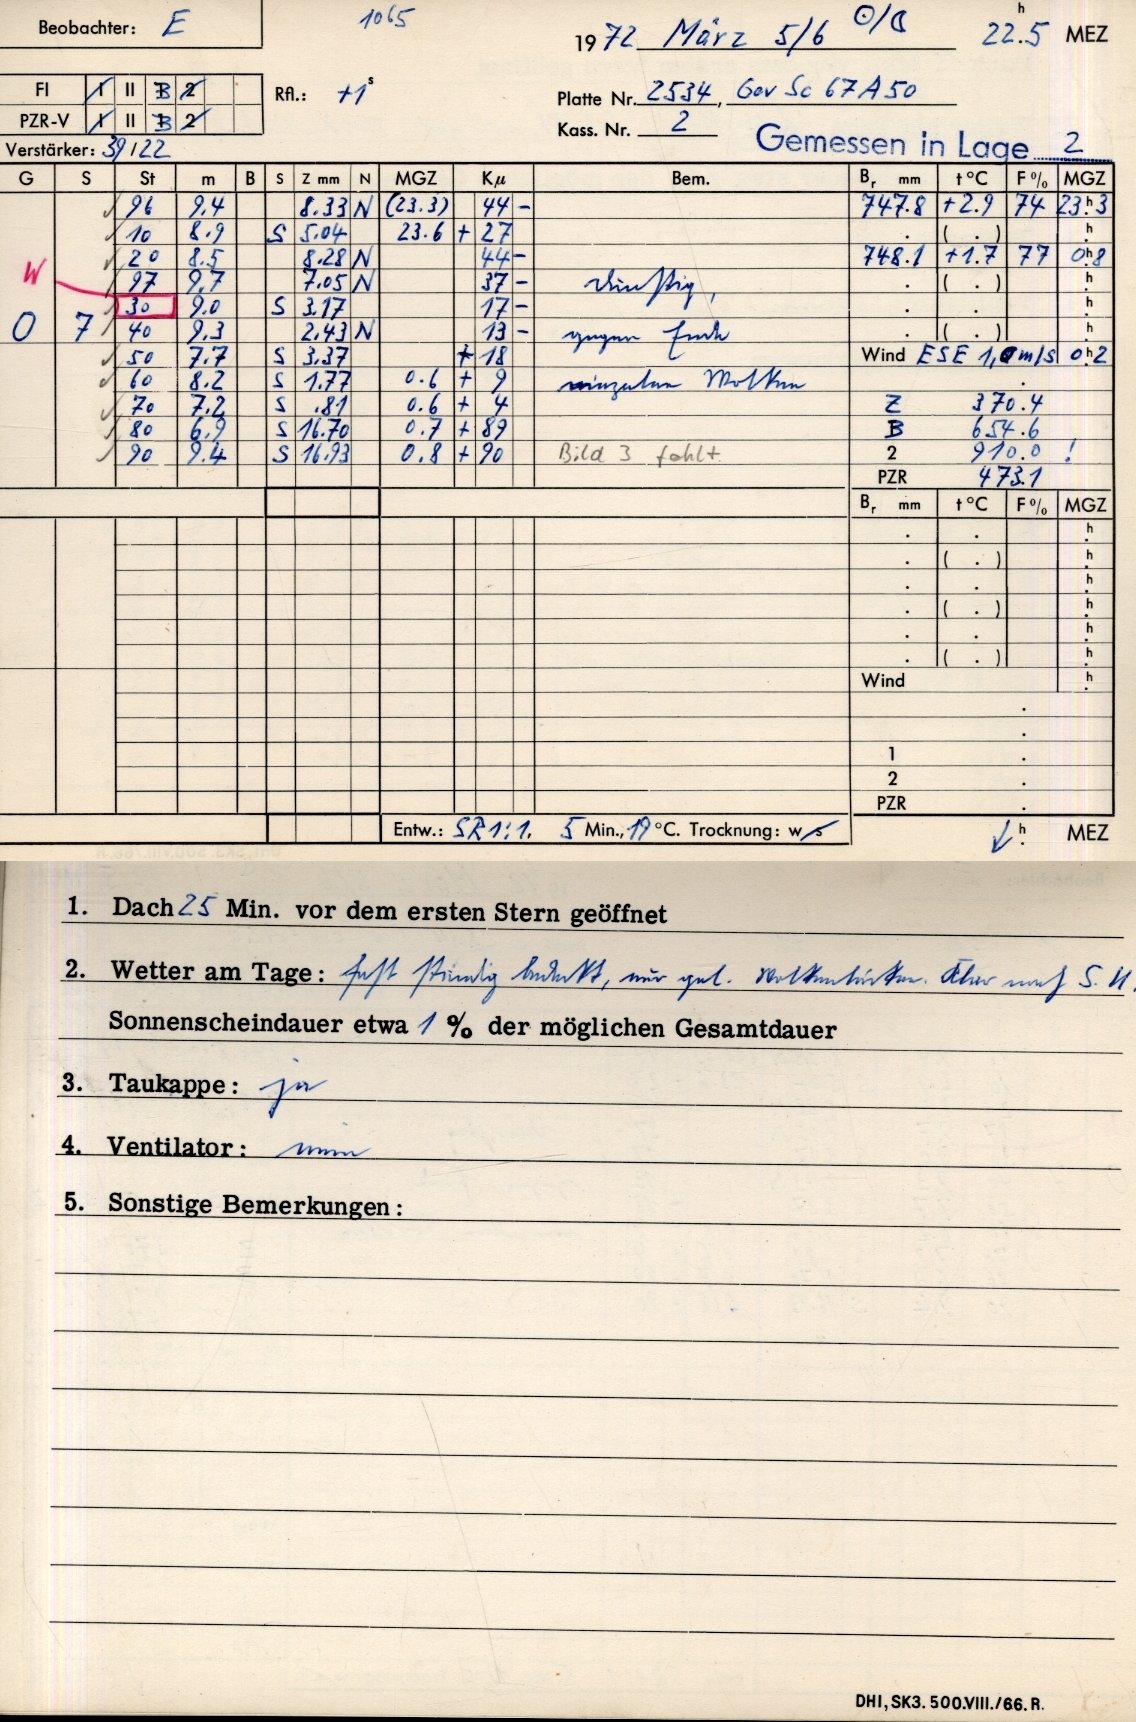 Beobachter: E
1065
1972 März 5/6 ☉/☾ 22.5 h MEZ
FI I II B 2
PZR-V I II B 2
Rfl.: +1 s
Platte Nr. 2534, Gev Sc 67A50
Kass. Nr. 2
Gemessen in Lage 2
Verstärker: 39/22
G S St m B S Z mm N MGZ Kμ Bem. Br mm t °C F % MGZ
96 9.4 8.33 N (23.3) 44 - 747.8 +2.9 74 23 h 3
10 8.9 S 5.04 23.6 + 27 . ( . ) h
20 8.5 8.28 N 44 - 748.1 +1.7 77 0 h 8
W
97 9.7 7.05 N 37 - dunstig, . ( . ) h
30 9.0 S 3.17 17 - . . h
0 7 40 9.3 2.43 N 13 - gegen Ende . ( . ) h
50 7.7 S 3.37 + 18 Wind ESE 1,0 m/s 0 h 2
60 8.2 S 1.77 0.6 + 9 einzelne Wolken .
70 7.2 S .81 0.6 + 4 Z 370.4
80 6.9 S 16.70 0.7 + 89 B 654.6
90 9.4 S 16.93 0.8 + 90 Bild 3 fehlt 2 910.0 !
PZR 473.1
Br mm t °C F % MGZ
. . h
. ( . ) h
. . h
. ( . ) h
. . h
. ( . ) h
Wind h
.
.
1 .
2 .
PZR .
Entw.: SR 1:1. 5 Min., 19 °C. Trocknung: w/s h MEZ
1. Dach 25 Min. vor dem ersten Stern geöffnet
2. Wetter am Tage: fast ständig bedeckt, nur gel. Wolkenlücken. Klar nach S.U.
Sonnenscheindauer etwa 1 % der möglichen Gesamtdauer
3. Taukappe: ja
4. Ventilator: nein
5. Sonstige Bemerkungen:
DHI, SK3. 500.VIII./66. R.